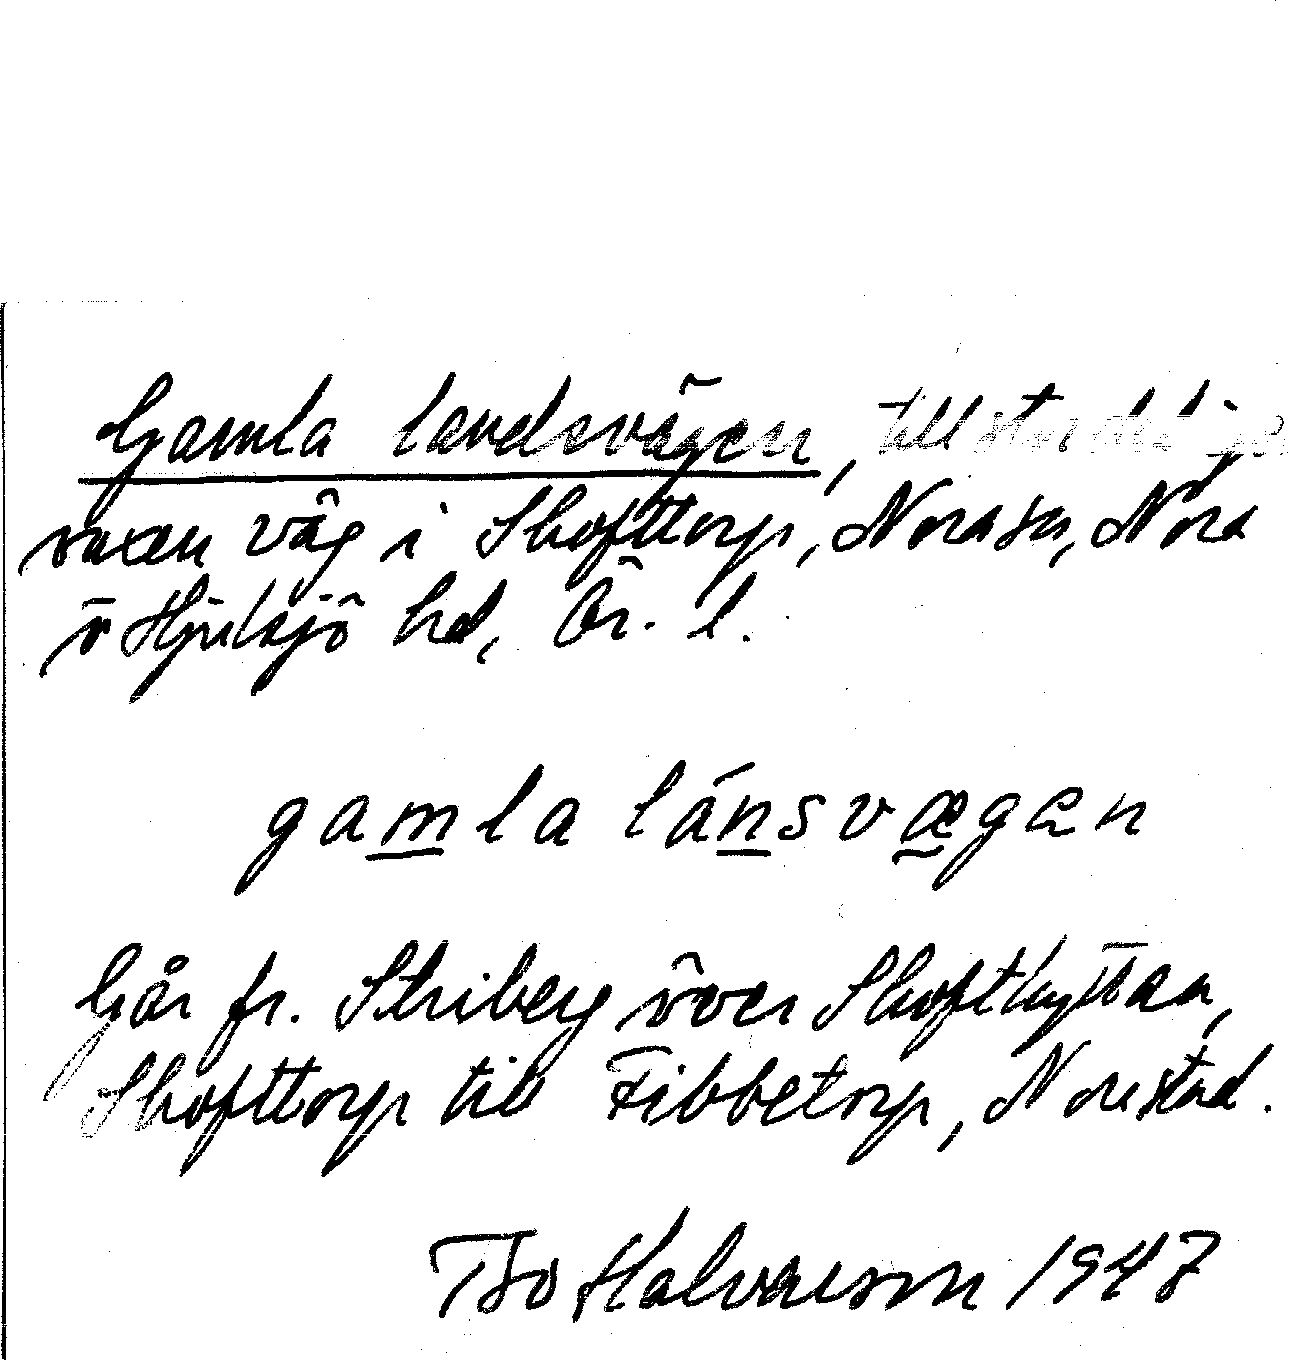 Gamla landsvägen, till stor del ige
vuxen väg i Skofttorp, Nora sn, Nora
o Hjulsjö hd, Ör. l.
gamla lánsvægan
Går fr. Striberg över Skofthyttan,
Skofttorp till Fibbetorp, Nora stad.
Bo Halvarson 1947